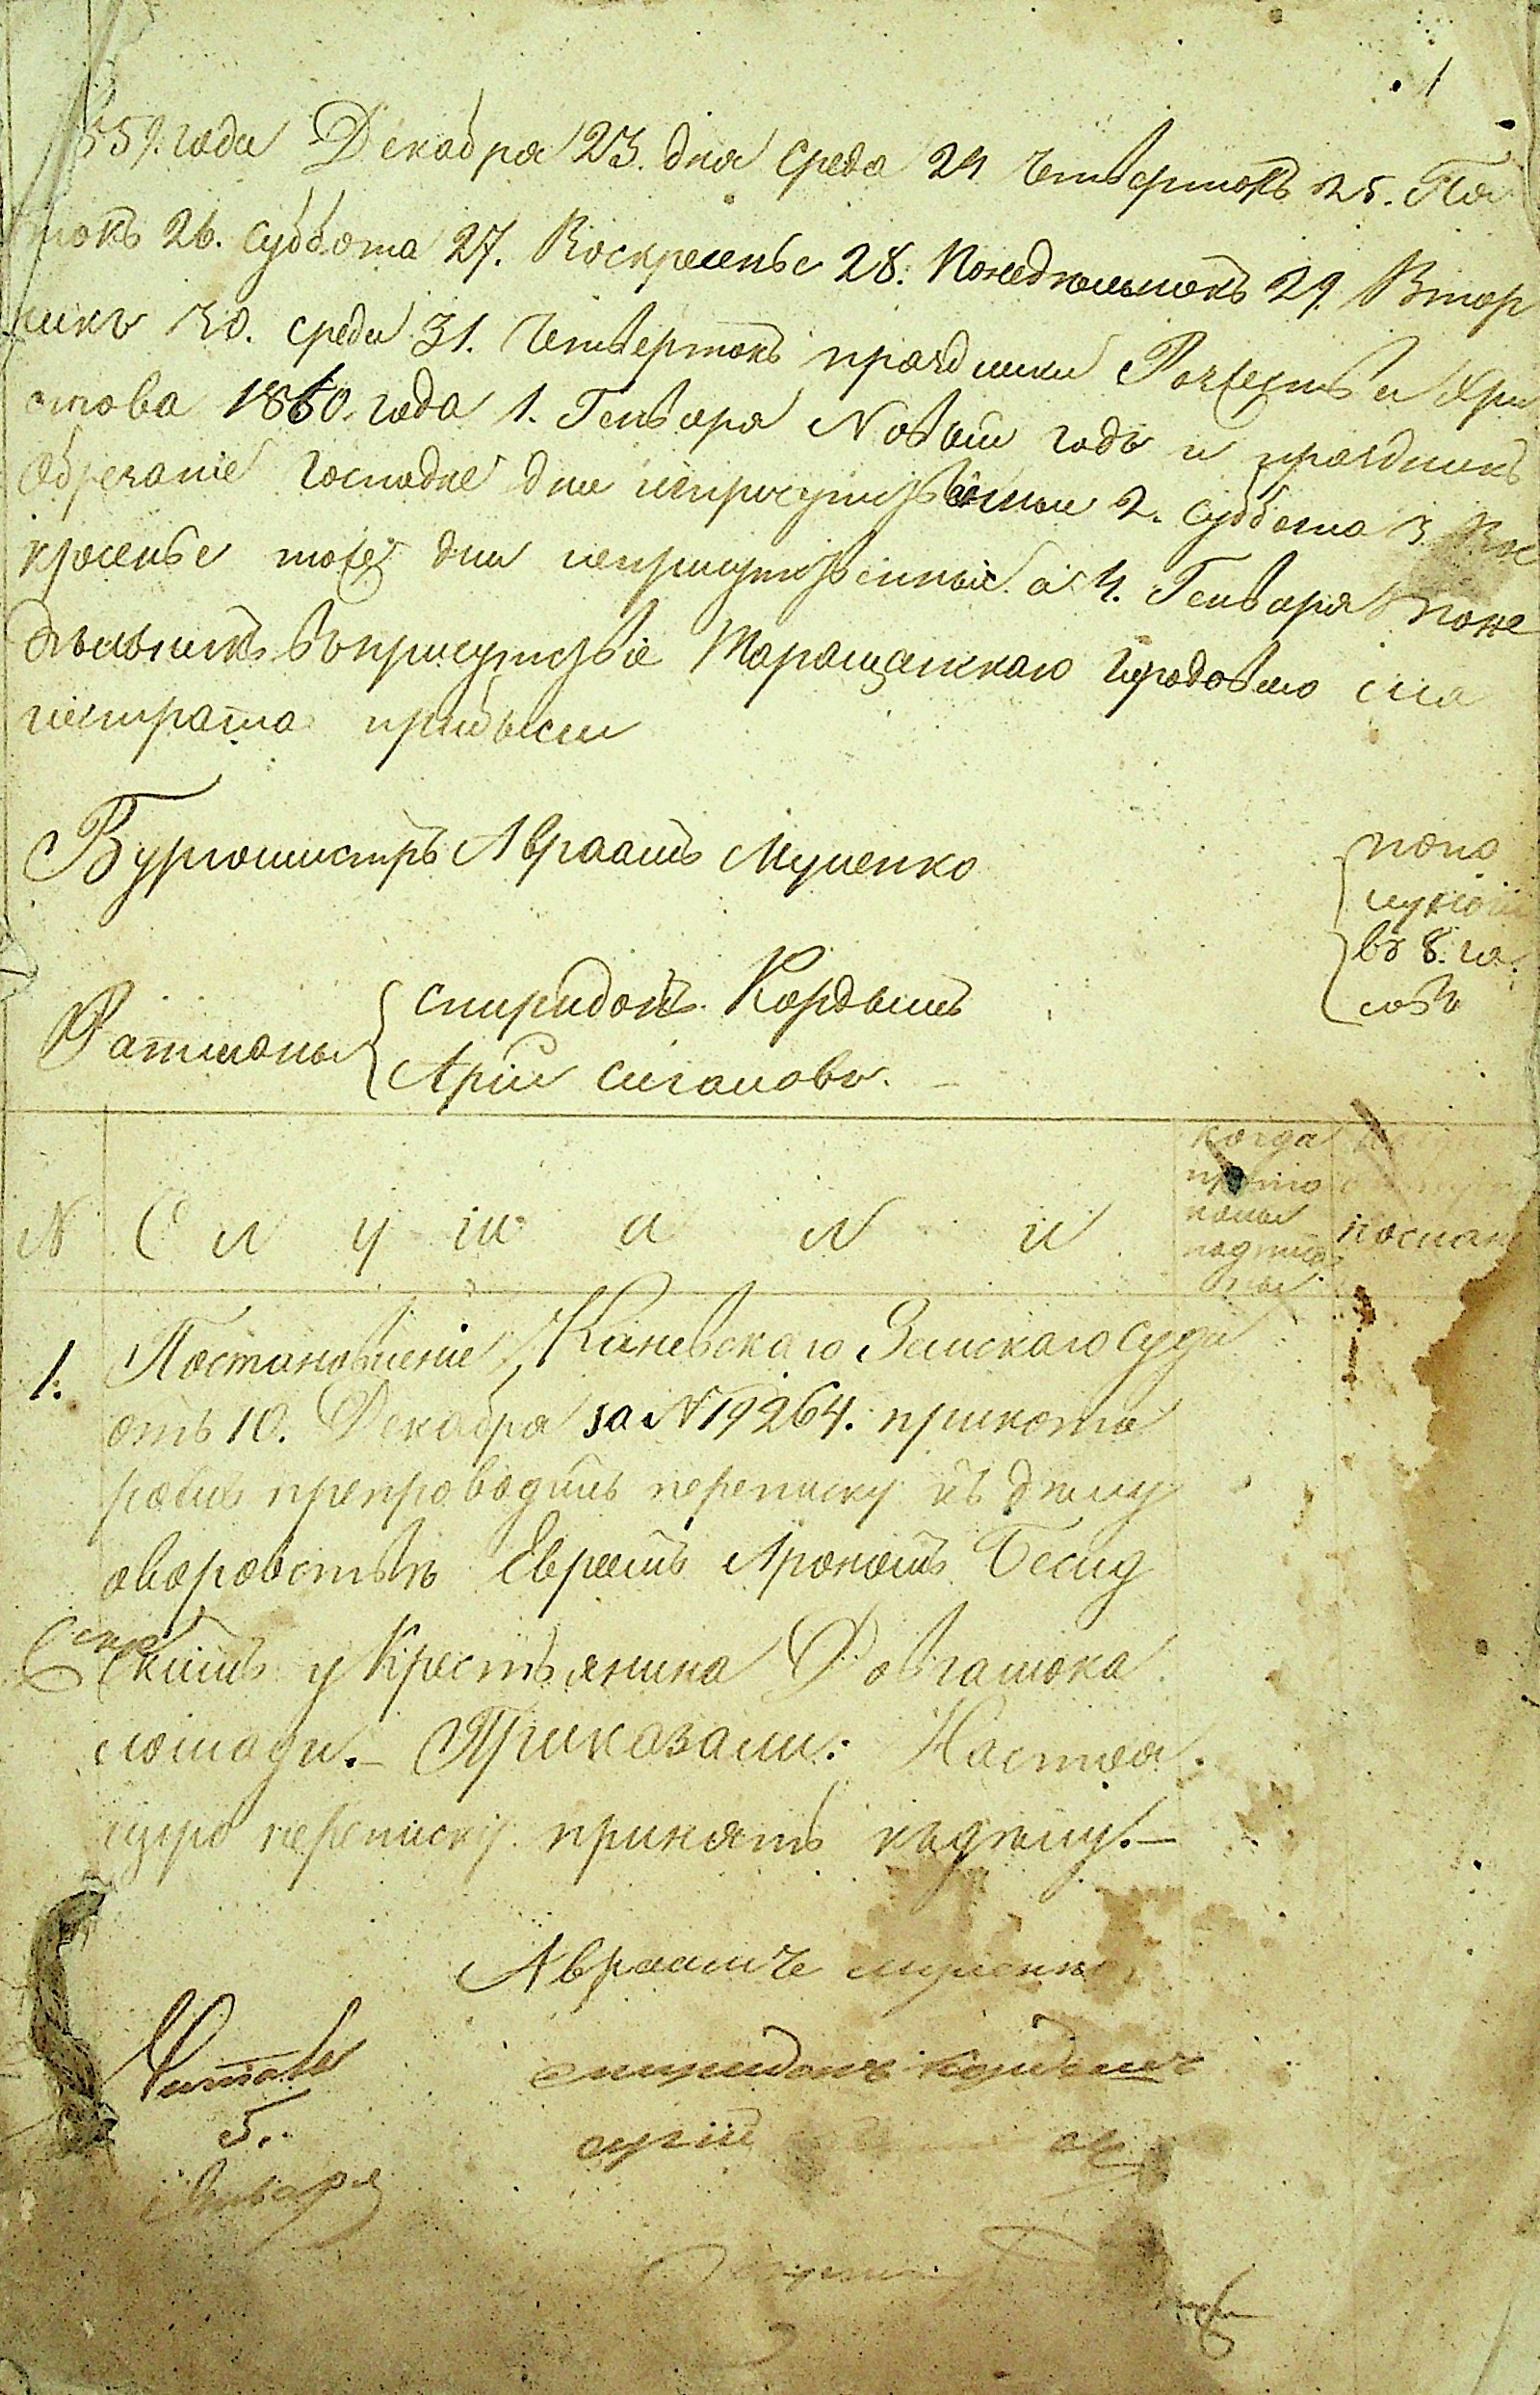 1
859. года Декабря 23. дня среда 24 Четвертокъ 25. Пя
токъ 26. суббота 27. Воскресенье 28. понедѣльникъ 29. Втор
никъ 30. среда 31. Четвертокъ праздники Рождества Хри
стова 1860. года 1. Генваря Новый годъ и праздникъ
Обрезаніе Господне дни неприсутственные 2. суббота 3. Вос
кресенье тожъ дни неприсутственные а 4. Генваря поне
дѣльникъ въ присутствіе Таращанскаго Городоваго Ма
гистрата прибыли
Бургомистръ Авраамъ Муценко
попо
луночи
въ 8. ча
совъ
Ратманы
Спиридонъ Кордышъ
Арій Сигаловъ.
N Слушали
когда
прото
колы
подписа
ны
1. Постановленіе Каневскаго Земскаго суда
отъ 10. Декабря за N 19264. при кото
ромъ препроводилъ переписку къ дѣлу
о воровствѣ Евреемъ Арономъ Бесид
скимъ у Крестьянина Довгалюка
лошади. – Приказали: Настоя
щую переписку принять къ дѣлу. –
Авраамъ Муценко
Читалъ
5.
Января
Спиридонъ Кордышъ
Арій